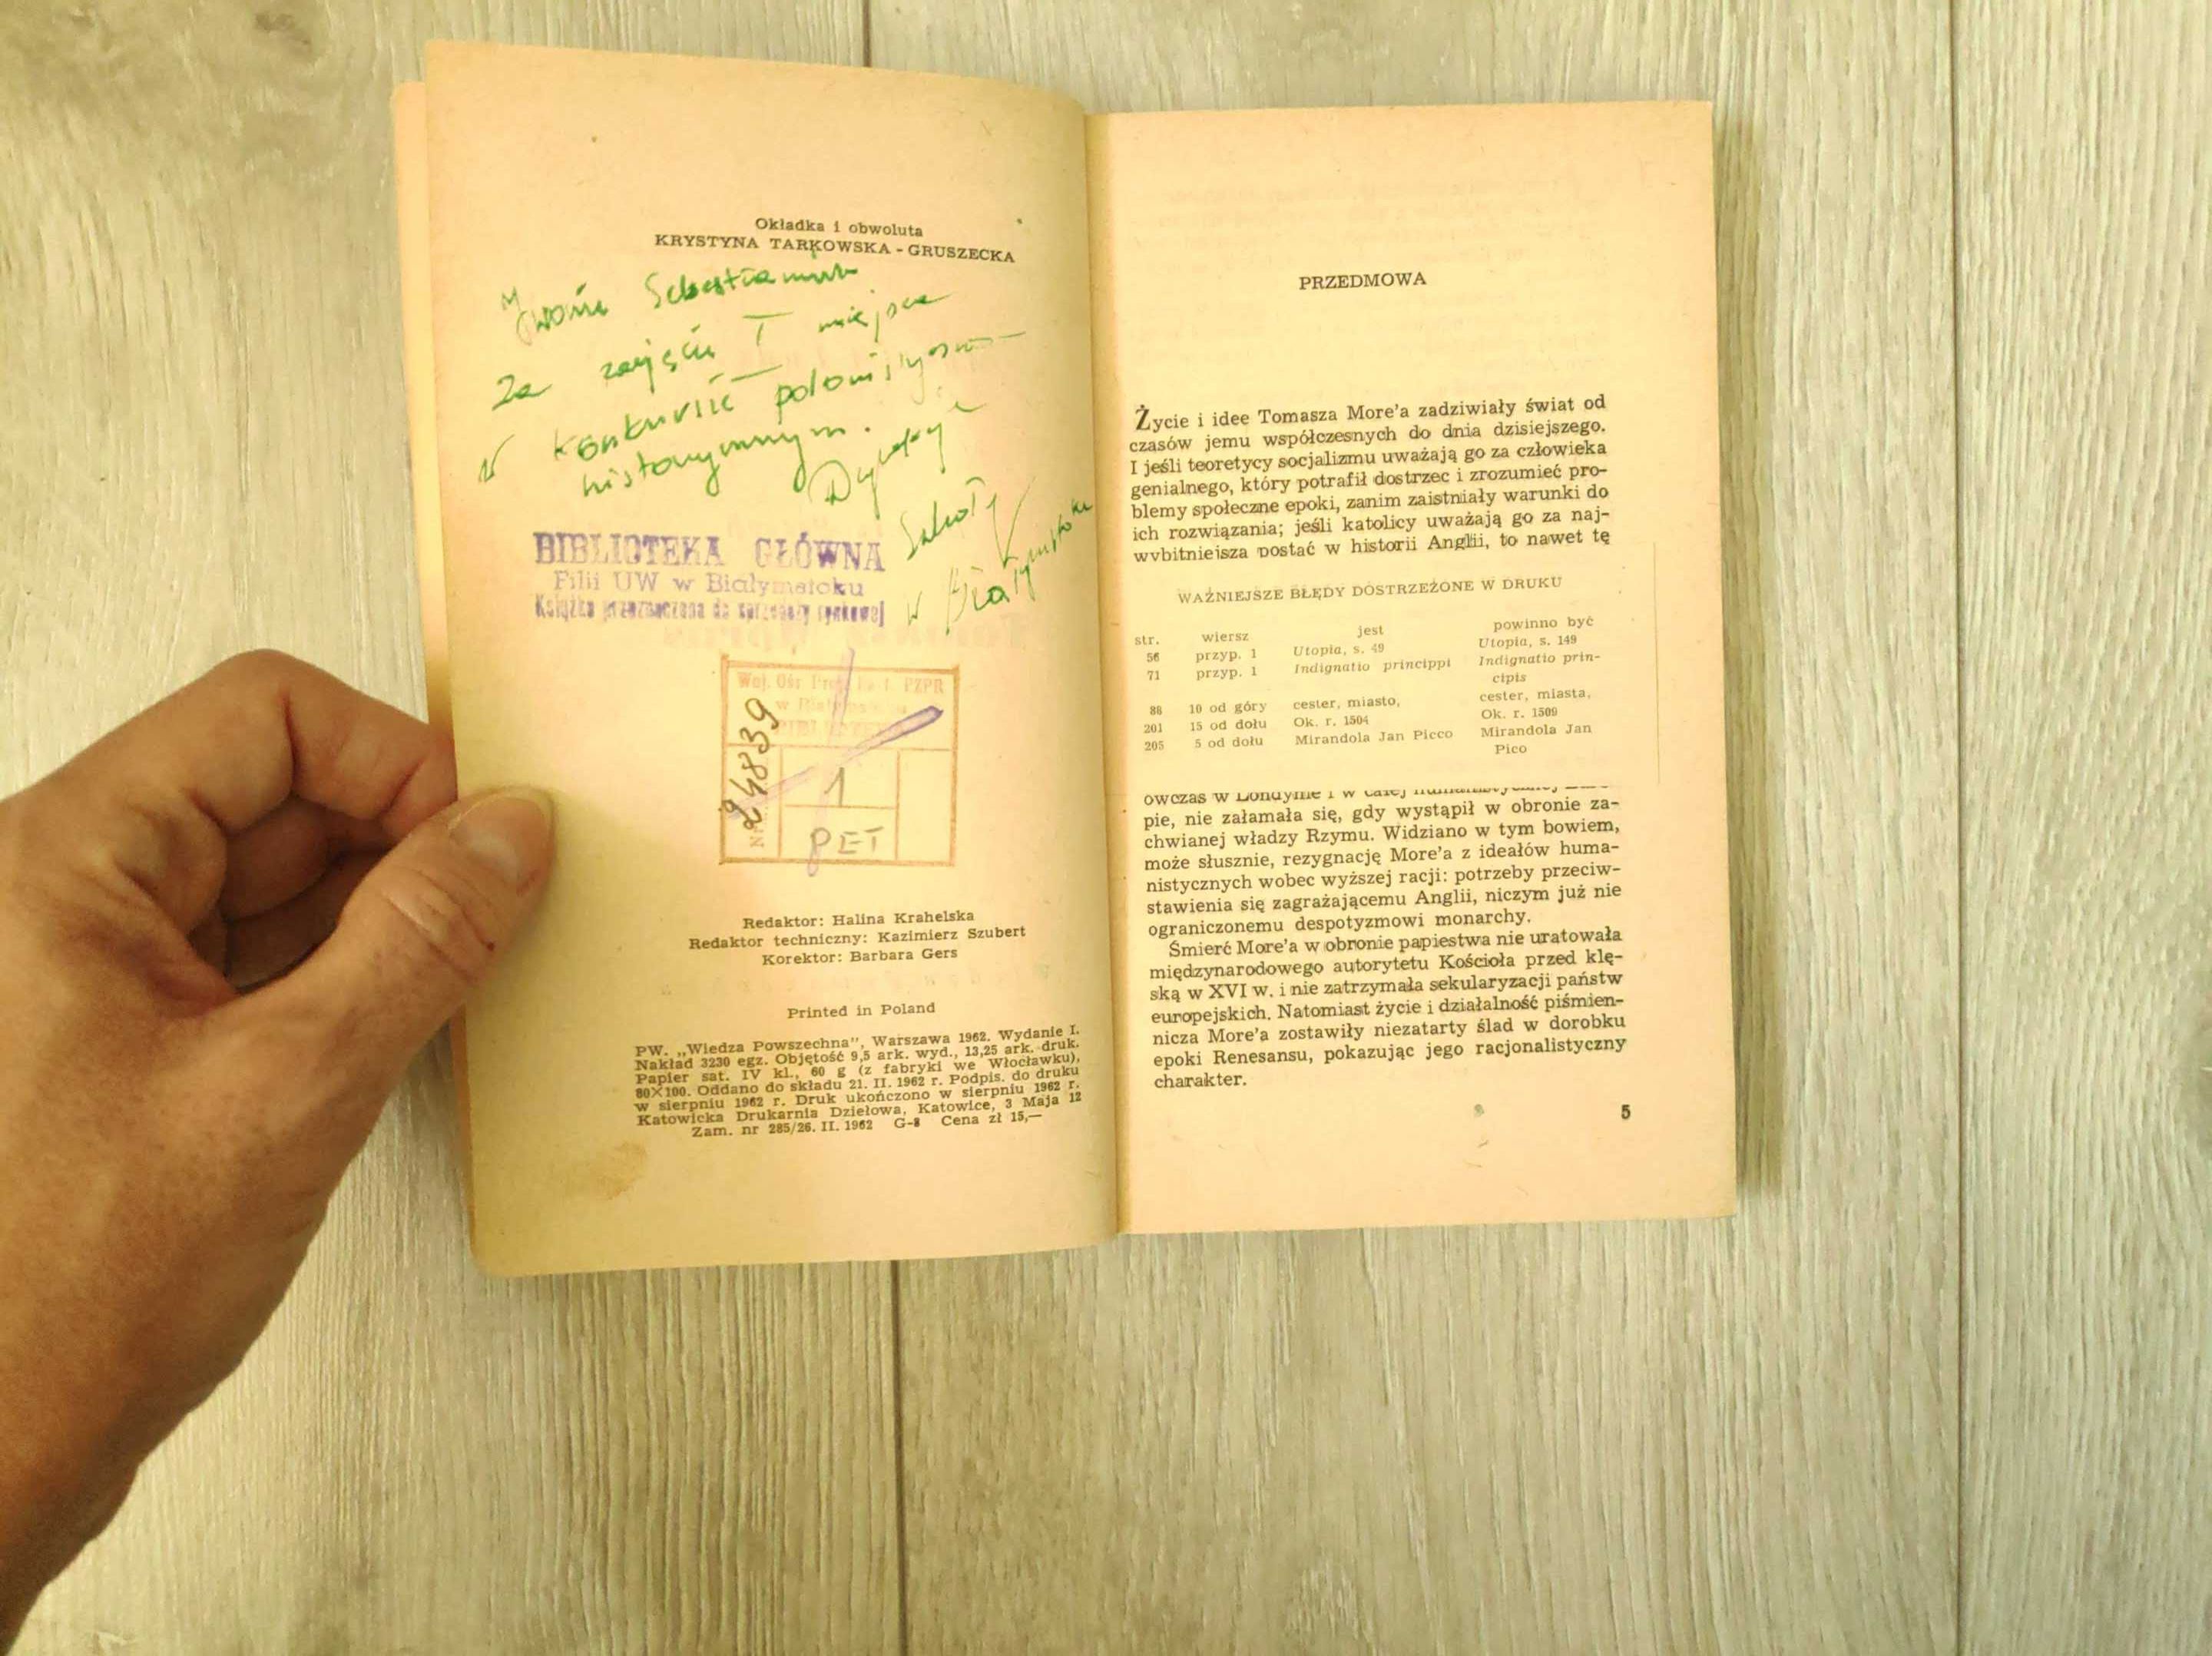 Okładka i obwoluta
KRYSTYNA TARKOWSKA-GRUSZECKA
Sebastianowi
za zajęcie I miejsca
w konkursie polonistyczno-
historycznym.
Dyrekcja
Szkoły
w Białymstoku
BIBLIOTEKA GŁÓWNA
Filii UW w Białymstoku
Książka przeznaczona do sprzedaży rynkowej
PZPR
24839
1
PET
Redaktor: Halina Krahelska
Redaktor techniczny: Kazimierz Szubert
Korektor: Barbara Gers
Printed in Poland
PW. „Wiedza Powszechna", Warszawa 1962. Wydanie I.
Nakład 3230 egz. Objętość 9,5 ark. wyd., 13,25 ark. druk.
Papier sat. IV kl., 60 g (z fabryki we Włocławku),
80×100. Oddano do składu 21. II. 1962 r. Podpis. do druku
w sierpniu 1962 r. Druk ukończono w sierpniu 1962 r.
Katowicka Drukarnia Dziełowa, Katowice, 3 Maja 12
Zam. nr 285/26. II. 1962 G-8 Cena zł 15,—
PRZEDMOWA
Życie i idee Tomasza More'a zadziwiały świat od
czasów jemu współczesnych do dnia dzisiejszego.
I jeśli teoretycy socjalizmu uważają go za człowieka
genialnego, który potrafił dostrzec i zrozumieć pro-
blemy społeczne epoki, zanim zaistniały warunki do
ich rozwiązania; jeśli katolicy uważają go za naj-
wybitniejszą postać w historii Anglii, to nawet tę
WAŻNIEJSZE BŁĘDY DOSTRZEŻONE W DRUKU
str. wiersz jest powinno być
56 przyp. 1 Utopia, s. 49 Utopia, s. 149
71 przyp. 1 Indignatio princippi Indignatio prin-
cipis
88 10 od góry cester, miasto, cester, miasta,
201 15 od dołu Ok. r. 1504 Ok. r. 1509
205 5 od dołu Mirandola Jan Picco Mirandola Jan
Pico
owczas w Londynie i w całej
pie, nie załamała się, gdy wystąpił w obronie za-
chwianej władzy Rzymu. Widziano w tym bowiem,
może słusznie, rezygnację More'a z ideałów huma-
nistycznych wobec wyższej racji: potrzeby przeciw-
stawienia się zagrażającemu Anglii, niczym już nie
ograniczonemu despotyzmowi monarchy.
Śmierć More'a w obronie papiestwa nie uratowała
międzynarodowego autorytetu Kościoła przed klę-
ską w XVI w. i nie zatrzymała sekularyzacji państw
europejskich. Natomiast życie i działalność piśmien-
nicza More'a zostawiły niezatarty ślad w dorobku
epoki Renesansu, pokazując jego racjonalistyczny
charakter.
5